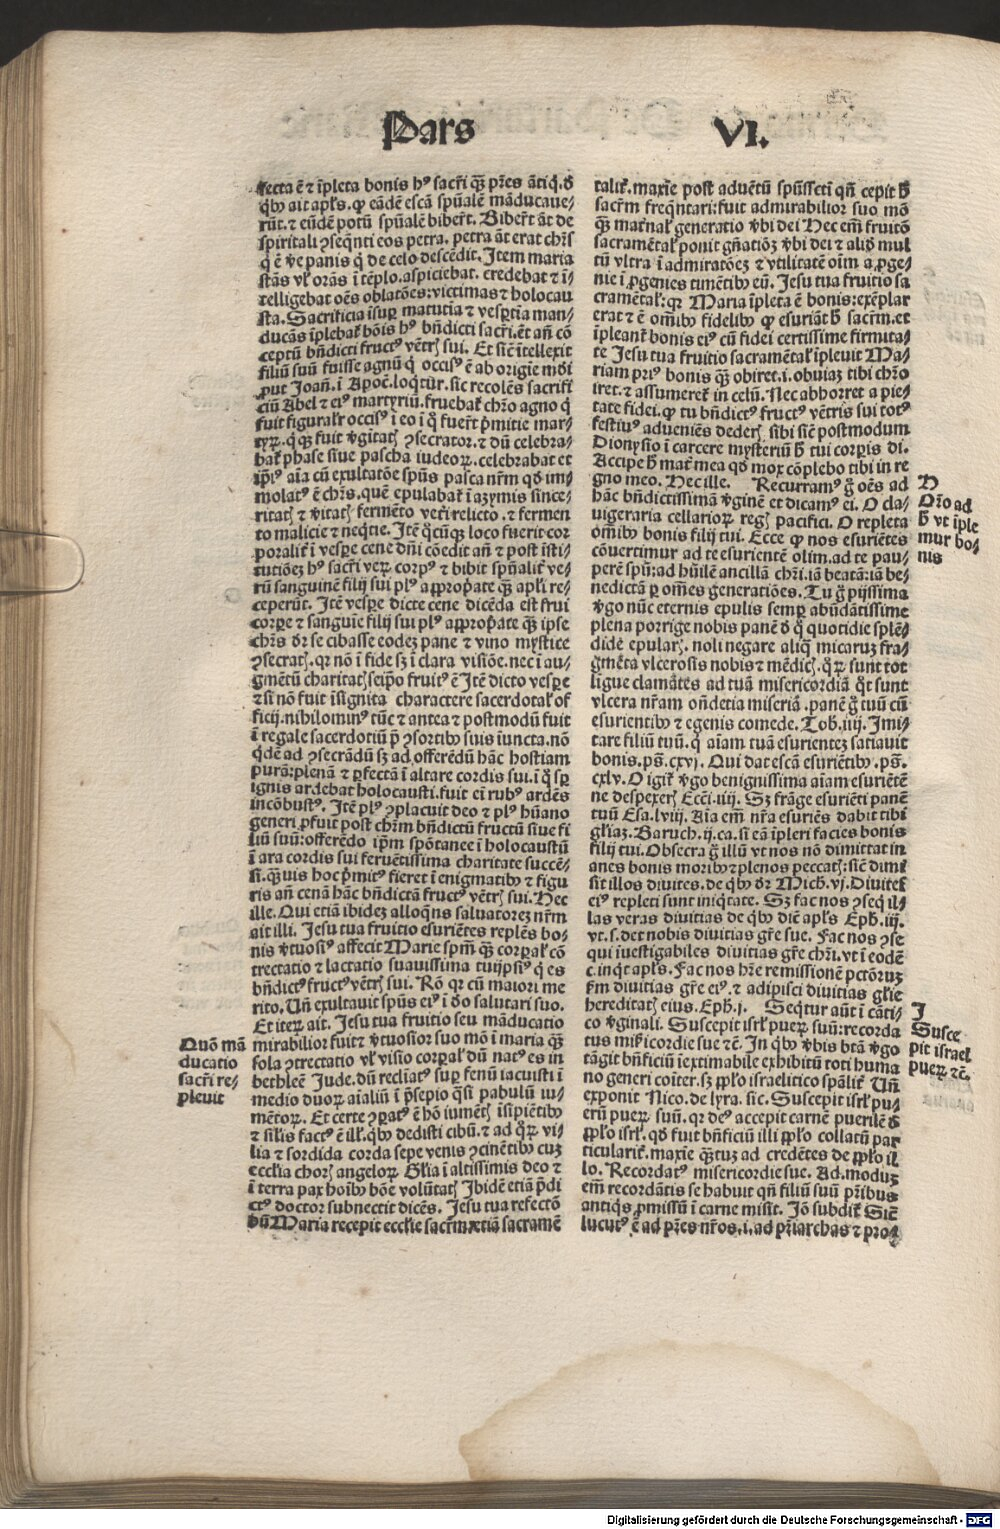 Pars VI.
fecta ē ⁊ īpleta bonis hꝰ sacr̄i qꝫ pr̄es ātiq̄. d̄
qͥbꝰ ait apl̄s. ꝙ eādē escā spūalē māducaue⸗
rūt. ⁊ eūdē potū spūalē biber̄t. Biber̄t āt de
spiritali ꝯseqn̄ti eos petra. petra āt erat chr̄s
q̇ ē v̄e panis q̇ de celo descēdit. Item maria
stās vl̓ orās ī tēplo. aspiciebat. credebat ⁊ ī⸗
telligebat oēs oblatōes: victimas ⁊ holocau
sta. Sacrificia īsuꝑ matutīa ⁊ vesꝑtīa man⸗
ducās īplebat̓ bōis hꝰ bn̄dicti sacr̄i. et añ cō
ceptū bn̄dicti fructꝰ vētrꝭ sui. Et sic̄ ītellexit
filiū suū fuisse agnū q̇ occisꝰ ē ab origīe mūdi
ꝓut Joañ. ī Apoc̄. loqͥtur. sic recolēs sacrifi
ciū Abel ⁊ eiꝰ martyriū. fruebat̓ chr̄o agno q̇
fuit figural̓r occisꝰ ī eo ī q̇ fuer̄t p̄mitie mar⸗
tyꝝ. q̇ qꝫ fuit v̓gītatꝭ ꝯsecrator. ⁊ dū celebra⸗
bat̓ phase siue pascha iudeoꝝ. celebrabat et
ip̄iꝰ aīa cū exultatōe spūs pasca nr̄m qd̓ im⸗
molatꝰ ē chr̄s. quē epulabat̓ ī azymis since⸗
ritatꝭ ⁊ v̓itatꝭ fermēto vet̓i relicto. ⁊ fermen
to malicie ⁊ neq̇tie. Itē q̇cūqꝫ loco fuerit cor
poralit̓ ī vesꝑe cene dn̄i cōedit añ ⁊ post īsti⸗
tutiōeꝫ hꝰ sacr̄i veꝝ corpꝰ ⁊ bibit spūalit̓ ve⸗
rū sanguinē filij sui plꝰ aꝓpriate qꝫ apl̄i re⸗
ceperūt. Itē vesꝑe dicte cene dicēda est frui
corꝑe ⁊ sanguīe filij sui plꝰ aꝓpriate qꝫ ipse
chr̄s dr̄ se cibasse eodeꝫ pane ⁊ vino mystice
ꝯsecratꝭ. qꝛ nō ī fide sꝫ ī clara visiōe. nec ī au⸗
gmētū charitatꝭ seip̄o fruitꝰ ē Itē dicto vesꝑe
⁊ si nō fuit īsignita charactere sacerdotal̓ of
ficij. nihilominꝰ tūc ⁊ antea ⁊ postmodū fuit
ī regale sacerdotiū p̄ ꝯsortibꝰ suis iuncta. nō
q̇dē ad ꝯsecrādū sꝫ ad offerēdū hāc hostiam
purā: plenā ⁊ ꝑfectā ī altare cordis sui. ī q̇ sꝑ
ignis ardebat holocausti. fuit eī rubꝰ ardēs
incōbustꝰ. Itē plꝰ ꝯplacuit deo ⁊ plꝰ hūano
generi ꝓfuit post chr̄m bn̄dictū fructū siue fi
liū suū: offerēdo ip̄m spōtanee ī holocaustū
ī ara cordis sui feruētissima charitate succē⸗
si. qꝫuis hoc p̄mitꝰ fieret ī enigmatibꝰ ⁊ figu
ris añ cenā hāc bn̄dictā fructꝰ vētrꝭ sui. Hec
ille. Qui etiā ibideꝫ alloqͥns saluatoreꝫ nr̄m
ait illi. Jesu tua fruitio esuriētes replēs bo⸗
nis v̓tuosiꝰ affecit Marie spm̄ qꝫ corꝑal̓ cō
trectatio ⁊ lactatio suauissima tuijpsiꝰ q̇ es
bn̄dictꝰ fructꝰ vētrꝭ sui. Rō qꝛ cū maiori me
rito. Vñ exultauit spūs eiꝰ ī deo salutari suo.
Et iteꝝ ait. Jesu tua fruitio seu māducatio
mirabilior fuit ⁊ v̓tuosior suo mō ī maria qꝫ
sola ꝯtrectatio vl̓ visio corꝑal̓ dū natꝰ es in
bethleē Jude. dū recliatꝰ suꝑ fenū iacuisti ī
medio duoꝝ aīaliū ī p̄sepio q̄si pabulū iu⸗
mētoꝝ. Et certe ꝯꝑatꝰ ē hō iumētꝭ īsipiētibꝰ
⁊ silis factꝰ ē ill̓. qͥbꝰ dedisti cibū. ⁊ ad q̇ꝝ vi⸗
lia ⁊ sordida corda sepe venis ꝯcinētibꝰ cuꝫ
eccl̄ia chorꝭ angeloꝝ. Gl̄ia ī altissimis deo ⁊
ī terra pax hoībꝰ bōe volūtatꝭ Ibidē etiā p̄di
ctꝰ doctor subnectit dicēs. Jesu tua refectō
dū Maria recepit eccl̄ie sacr̄m etiā sacramē
Quō mā
ducatio
sacr̄i re⸗
pleuit
talit̓. maxīe post aduētū spūssctī qñ cepit h̄
sacr̄m freqn̄tari: fuit admirabilior suo mō
qꝫ mat̓nal̓ generatio v̓bi dei Hec em̄ fruitō
sacramētal̓ ponit gn̄atiōꝫ v̓bi dei ⁊ aliqd̓ mul
tū vltra ī admiratōeꝫ ⁊ vtilitatē oīm a ꝓge⸗
nie ī ꝓgenies timētibꝰ eū. Jesu tua fruitio sa
cramētal̓: qꝛ Maria īpleta ē bonis: exēplar
erat ⁊ ē om̄ibꝰ fidelibꝰ ꝙ esuriāt h̄ sacr̄m. et
īpleant̓ bonis eiꝰ cū fidei certissime firmita⸗
te Jesu tua fruitio sacramētal̓ īpleuit Ma⸗
riam priꝰ bonis qꝫ obiret. i. obuiaꝫ tibi chr̄o
iret. ⁊ assumeret̓ in celū. Nec abhorret a pie⸗
tate fidei. ꝙ tu bn̄dictꝰ fructꝰ vētris sui totꝰ
festiuꝰ adueniēs dederꝭ sibi sic̄ postmodum
Dionysio ī carcere mysteriū h̄ tui corꝑis di.
Accipe h̄ mat̓ mea qd̓ mox cōplebo tibi in re
gno meo. Hec ille. Recurramꝰ g̊ oēs ad
hāc bn̄dictissimā v̓ginē et dicamꝰ ei. O cla⸗
uigeraria cellarioꝝ regꝭ pacifici. O repleta
om̄ibꝰ bonis filij tui. Ecce ꝙ nos esuriētes
cōuertimur ad te esurientē olim. ad te pau⸗
perē spū: ad hūilē ancillā chr̄i. iā beatā: iā be⸗
nedictā ꝑ om̄es generatiōes. Tu g̊ pijssima
v̓go nūc eternis epulis semꝑ abūdātissime
plena porrige nobis panē d̓ q̇ quotidie splē⸗
dide epularꝭ. noli negare aliq̄ micaruꝫ fra⸗
gmēta vlcerosis nobis ⁊ mēdicꝭ. q̇ꝝ sunt tot
ligue clamātes ad tuā misericordiā q̇t sunt
vlcera nr̄am oñdētia miseriā. panē g̊ tuū cū
esurientibꝰ ⁊ egenis comede. Tob. iiij. Imi⸗
tare filiū tuū. q̇ aīam tuā esurienteꝫ satiauit
bonis. ps̄. cxvj. Qui dat escā esuriētibꝰ. ps̄.
cxlv. O igit̓ v̓go benignissima aīam esuriētē
ne despexerꝭ Ecc̄i. iiij. Sꝫ frāge esuriēti panē
tuū Esa. lviij. Aīa em̄ nr̄a esuriēs dabit tibi
gl̄iaꝫ. Baruch. ij. ca. si eā īpleri facies bonis
filij tui. Obsecra g̊ illū vt nos nō dimittat in
anes bonis moribꝰ ⁊ plenos peccatꝭ: sic̄ dimi
sit illos diuites. de qͥbꝰ dr̄ Mich. vj. Diuites
eiꝰ repleti sunt iniq̇tate. Sꝫ fac nos ꝯseq̇ il⸗
las veras diuitias de qͥbꝰ dic̄ apl̄s Eph. iij.
vt. s. det nobis diuitias gr̄e sue. Fac nos ꝯse
qui iuestigabiles diuitias gr̄e chr̄i. vt ī eodē
c. inq̇t apl̄s. Fac nos hr̄e remissionē pctōruꝫ
fm diuitias gr̄e eiꝰ. ⁊ adipisci diuitias gl̄ie
hereditatꝭ eius. Eph. j. Seqͥtur aūt ī cāti⸗
co v̓ginali. Suscepit isrl̓ pueꝝ suū: recorda
tus mīe̓icordie sue ⁊c̄. In qͥbꝰ v̓bis btā v̓go
tāgit bn̄ficiū īextimabile exhibitū toti huma
no generi cōiter. sꝫ ppl̓o israelitico spāl̓it̓. Vñ
exponit Nico. de lyra. sic. Suscepit isrl̓ pu⸗
erū pueꝝ suū. qꝛ deꝰ accepit carnē puerilē d̓
ppl̓o isrl̓. qd̓ fuit bn̄ficiū illi ppl̓o collatū par
ticularit̓. maxīe qꝫtuꝫ ad credētes de ppl̓o il
lo. Recordatꝰ misericordie sue. Ad moduꝫ
em̄ recordātis se habuit qñ filiū suū pr̄ibus
antiq̇s ꝓmissū ī carne misit. Jō subdit̓ Sic̄
lucutꝰ ē ad pr̄es nr̄os. i. ad pr̄iarchas ⁊ pro⸗
H
Orō ad
h̄ vt īple
mur bo⸗
nis
I
Susce
pit israel
pueꝝ ⁊c̄.
Digitalisierung gefördert durch die Deutsche Forschungsgemeinschaft - DFG